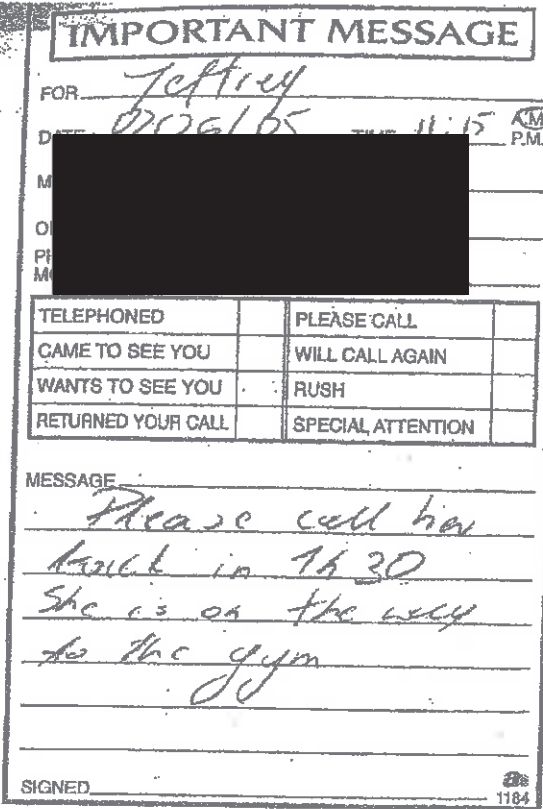 IMPORTANT MESSAGE
FOR Jeffrey
DATE 07/26/05 TIME 11:15 A.M.
P.M.
M
O
PH
MO
TELEPHONED PLEASE CALL
CAME TO SEE YOU WILL CALL AGAIN
WANTS TO SEE YOU RUSH
RETURNED YOUR CALL SPECIAL ATTENTION
MESSAGE
Please call her
back in 1h 30
She is on the way
to the gym
SIGNED
1184